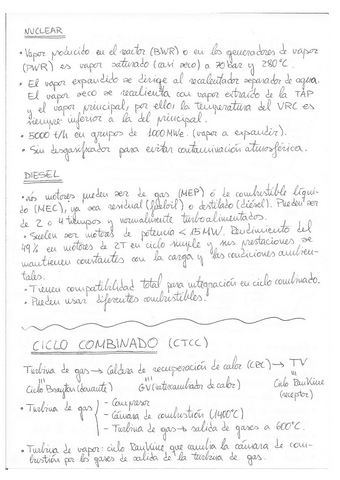 NUCLEAR
• Vapor producido en el reactor (BWR) o en los generadores de vapor
(PWR) es vapor saturado (casi seco) a 70 bar y 280°C.
• El vapor expandido se dirige al recalentador separador de agua.
El vapor seco se recalienta con vapor extraído de la TAP
y el vapor principal, por ello, la temperatura del VRC es
siempre inferior a la del principal.
• 5000 t/h en grupos de 1000 MWe. (vapor a expandir).
• Sin desgasificador para evitar contaminación atmosférica.
DIESEL
• Los motores pueden ser de gas (MEP) ó de combustible líqui-
do (MEC), ya sea residual (fueloil) o destilado (diésel). Pueden ser
de 2 o 4 tiempos y normalmente turboalimentados.
• Suelen ser motores de potencia < 15 MW. Rendimiento del
49% en motores de 2T en ciclo simple y sus prestaciones se
mantienen constantes con la carga y las condiciones ambien-
tales.
• Tienen compatibilidad total para integración en ciclo combinado.
• Pueden usar diferentes combustibles.
CICLO COMBINADO (CTCC)
Turbina de gas → Caldera de recuperación de calor (CRC) → TV
Ciclo Brayton (donante) GV (intercambiador de calor) Ciclo Rankine
(receptor)
• Turbina de gas - Compresor
- Cámara de combustión (1400°C)
- Turbina de gas → salida de gases a 600°C.
• Turbina de vapor: ciclo Rankine que cambia la cámara de com-
bustión por los gases de salida de la turbina de gas.